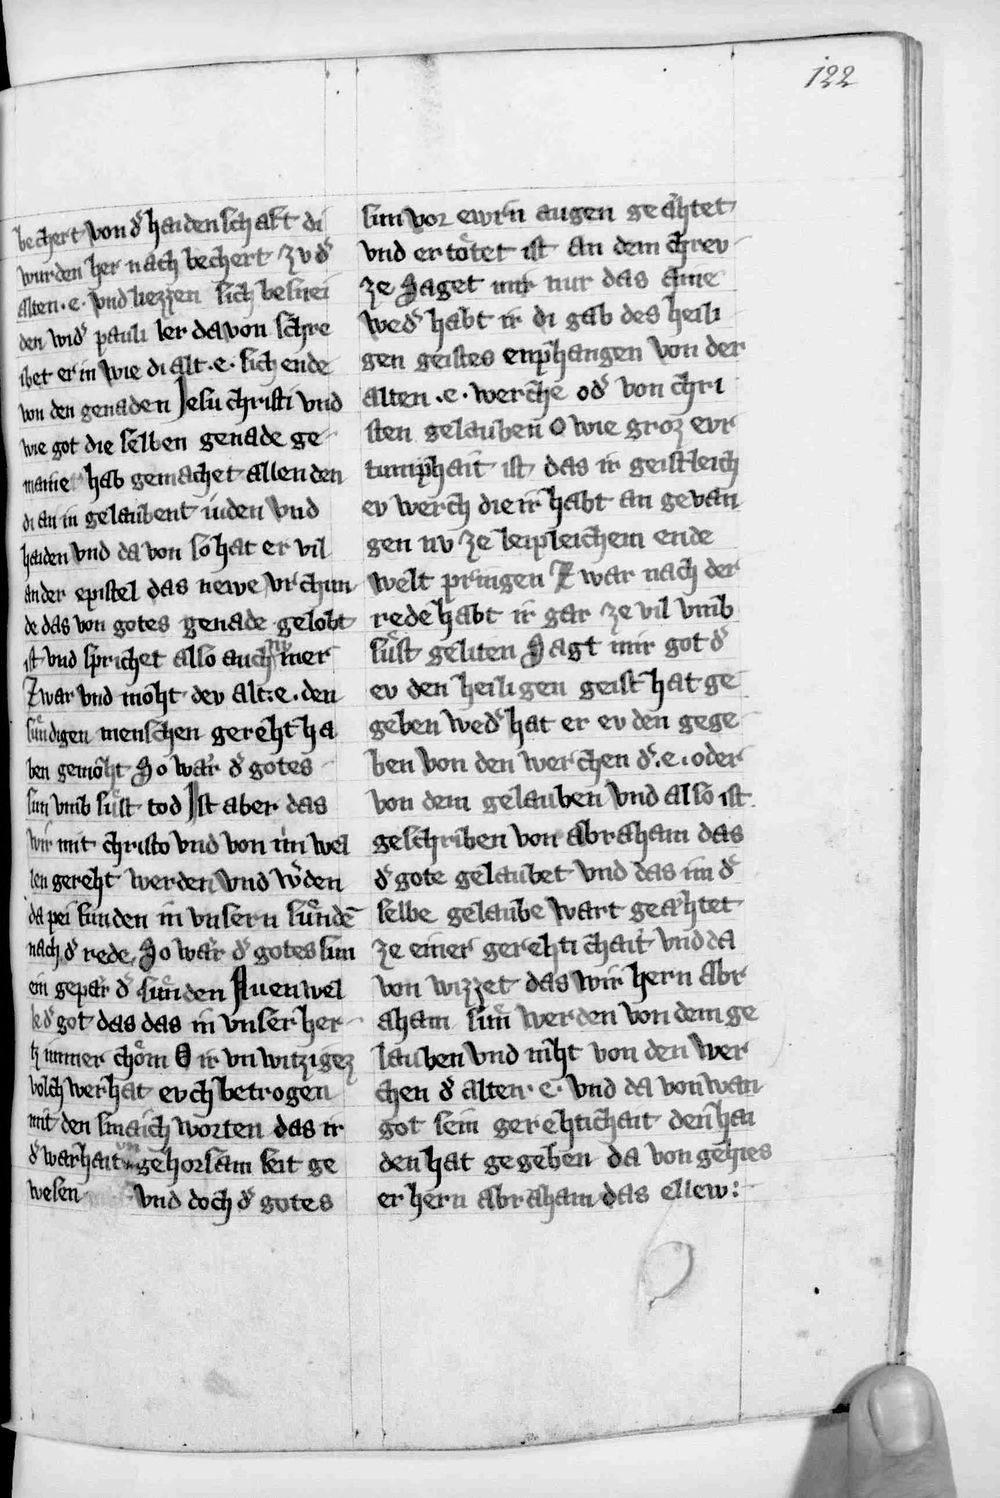 122
bechert von dˢ haidenschaft di
wurden her nach bechert zv dˢ
alten .e. vnd liezzen sich besnei
den widˢ pauli ler davon schre
ibet er in wie di alt .e. sich ende
von den genaden Jesu christi vnd
wie got die selben genade ge
maine hab gemachet allen den
di an in gelaubent iuden vnd
haiden vnd da von so hat er vil
an der epistel das newe vrchun
de das von gotes genade gelobt
ist vnd sprichet also auch mer
Zwar vnd moht dev alt .e. den
sundigen menschen gereht ha
ben gemoht So war dˢ gotes
sun vmb sust tod Ist aber das
wir mit christo vnd von im wel
len gereht werden vnd wˢden
da pei funden in vnsern sundē
nach dˢ rede So war dˢ gotes sun
ein geparˢ dˢ sunden Auen wel
le dˢ got das das in vnser her
tz immer chom O ir vn witzigez
volch wer hat evch betrogen
mit den smaich worten das ir
dˢ warhait vn gehorsam seit ge
wesen vnd doch dˢ gotes
sun vor ewrn augen geahtet
vnd ertotet ist an dem chrev
ze Saget mir nur das aine
wedˢ habt ir di gab des heili
gen geistes enphangen von der
alten .e. werche odˢ von chri
sten gelauben O wie groz evr
tumphait ist das ir geistleich
ev werch die ir habt an gevan
gen nv ze leipleichem ende
welt pringen Zwar nach der
rede habt ir gar ze vil vmb
sust geliten Sagt mir got dˢ
ev den heiligen geist hat ge
geben wedˢ hat er ev den gege
ben von den werchen dˢ .e. oder
von dem gelauben vnd also ist
geschriben von abraham das
dˢ gote gelaubet vnd das im dˢ
selbe gelaube wart geahtet
ze einer gerehtichait vnd da
von wizzet das wir hern abr
aham sun werden von dem ge
lauben vnd niht von den wer
chen dˢ alten .e. vnd da von wan
got sein gerehtichait den hai
den hat gegeben da von gehies
er hern abraham das ellew: